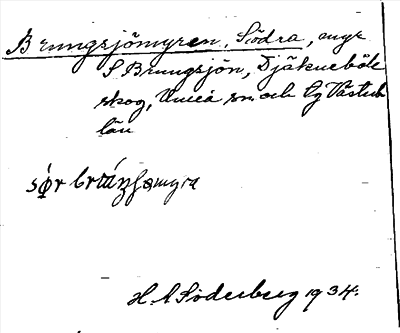 Brungsjömyren, Södra, myr
S Brungsjön, Djäkneböle
skog, Umeå sn och lg Västerb
län
sǿr brtánʃamyra
H. A Söderberg 1934.